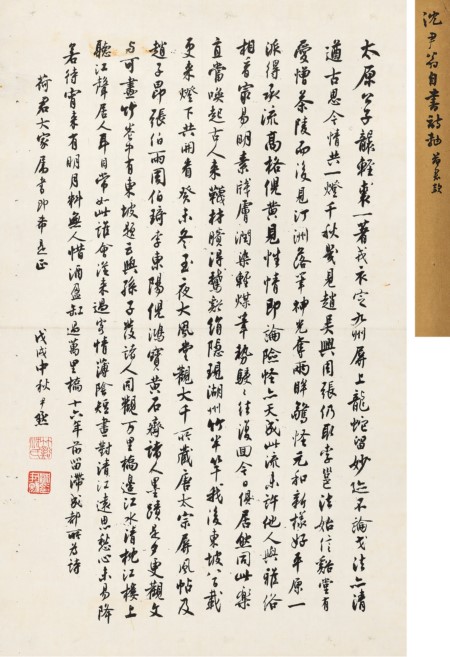 沈尹翁自書詩軸
太原公子襲輕裘一著戎衣定九州屏上龍蛇留妙迹不論戈法亦清
遒古思今情共一燈千秋幾見趙吳興周張仍取李邕法始信谿堂有
愛憎茶陵而後見汀洲落筆神光奪兩眸驚怪元和新樣好平原一
派得承流高格倪黃見性情即論險怪亦天成此流未許他人與雅俗
相看最易明素牋膚潤染輕煤筆勢駸駸往復回今日俱居然同此樂
直當喚起古人來戲拈賸得鵞谿絹隱現湖州竹半竿我後東坡八百載
更來燈下共開看癸未冬至夜大風堂觀大千所藏唐太宗屏風帖及
趙子昂張伯雨周伯琦李東陽倪鴻寶黃石齋諸人墨蹟更觀文
与可畫竹卷有東坡題云與孫子發諸人同觀万里橋邊江水清枕江樓上
聽江聲居人耳目常如此誰會從來過客情薄陰短晝對清江遠思愁心未易降
若待宵來有明月料無人惜酒盈缸過萬里橋十六年前留滯成都所為詩
荷君大家屬書即希是正 戊戌中秋尹默